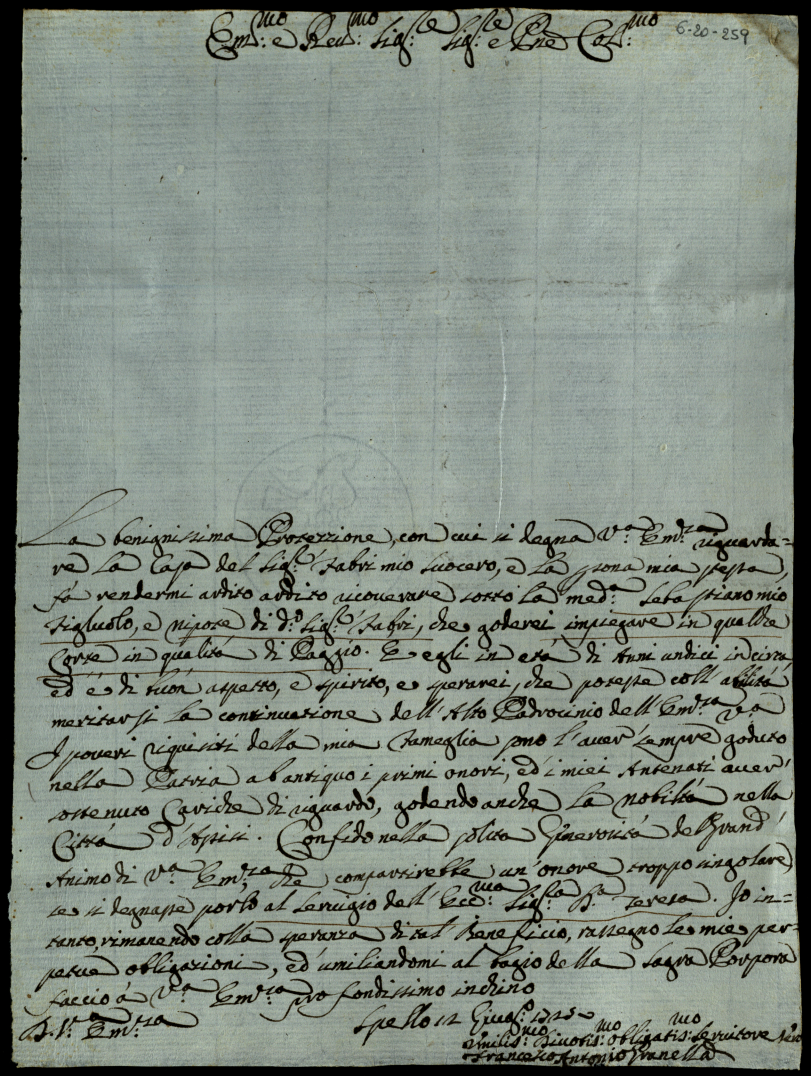 6-20-259
Em:mo e Rev:mo Sig:re Sig:re e Pne Col:mo
La benignissima Protezzione, con cui si degna V:a Em:za riguarda=
re la Casa del Sig:r Fabri mio suocero, e la pona mia stessa
fà rendermi ardito ardito ricoverare sotto la med:a Sebastiano mio
Figluolo, e nipote di d:o Sig:r Fabri, che goderei impiegare in qualche
Corte in qualità di Paggio. E egli in età di Anni undici in circa
ed è di buon aspetto, e spirito, e sperarei, che potesse coll'abilità
meritarsi la continuazione dell'Alto Padrocinio dell'Em:za V:a
I poveri riquisiti della mia Fameglia sono l'aver sempre goduto
nella Patria ab antiquo i primi onori, ed i miei Antenati aver'
sostenuto Cariche di riguardo, godendo anche la nobiltà nella
Città d'Assisi. Confido nella solita Generosità del Grand'
Animo di V:a Em:za, che compartirebbe un'onore troppo singolare,
se si degnasse porlo al servigio dell'Ecc:ma Sig:ra D:a Teresa. Io in=
tanto, rimanendo colla speranza di tal Beneficio, rassegno le mie per=
petue obligazioni, ed umiliandomi al bagio della Sagra Porpora
faccio à V:a Em:za profondissimo inchino
D. V:a Em:za Spello 12 Giug:o 1725
Umilis:mo Divotis:mo Obligatis:mo Servitore Vero
Francesco Antonio Granella